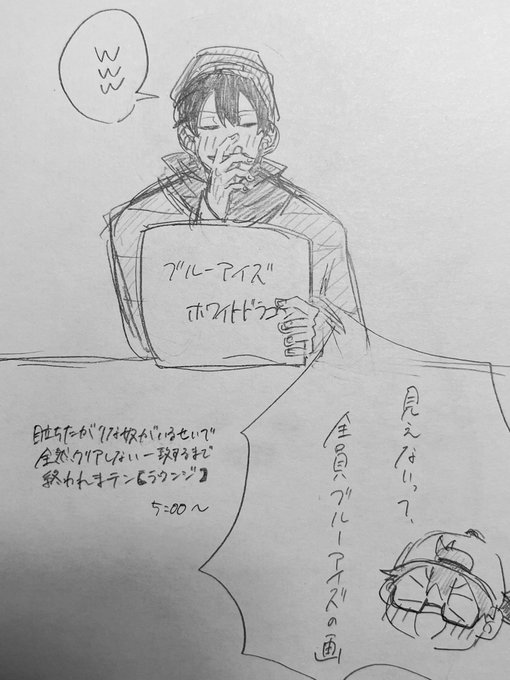 W
W
W
ブルーアイズ
ホワイトドラゴ
見えないって、
全員ブルーアイズの画
目立ちたがりな奴がいるせいで
全然クリアしない一致するまで
終われまテン【ラウンジ】
5:00〜